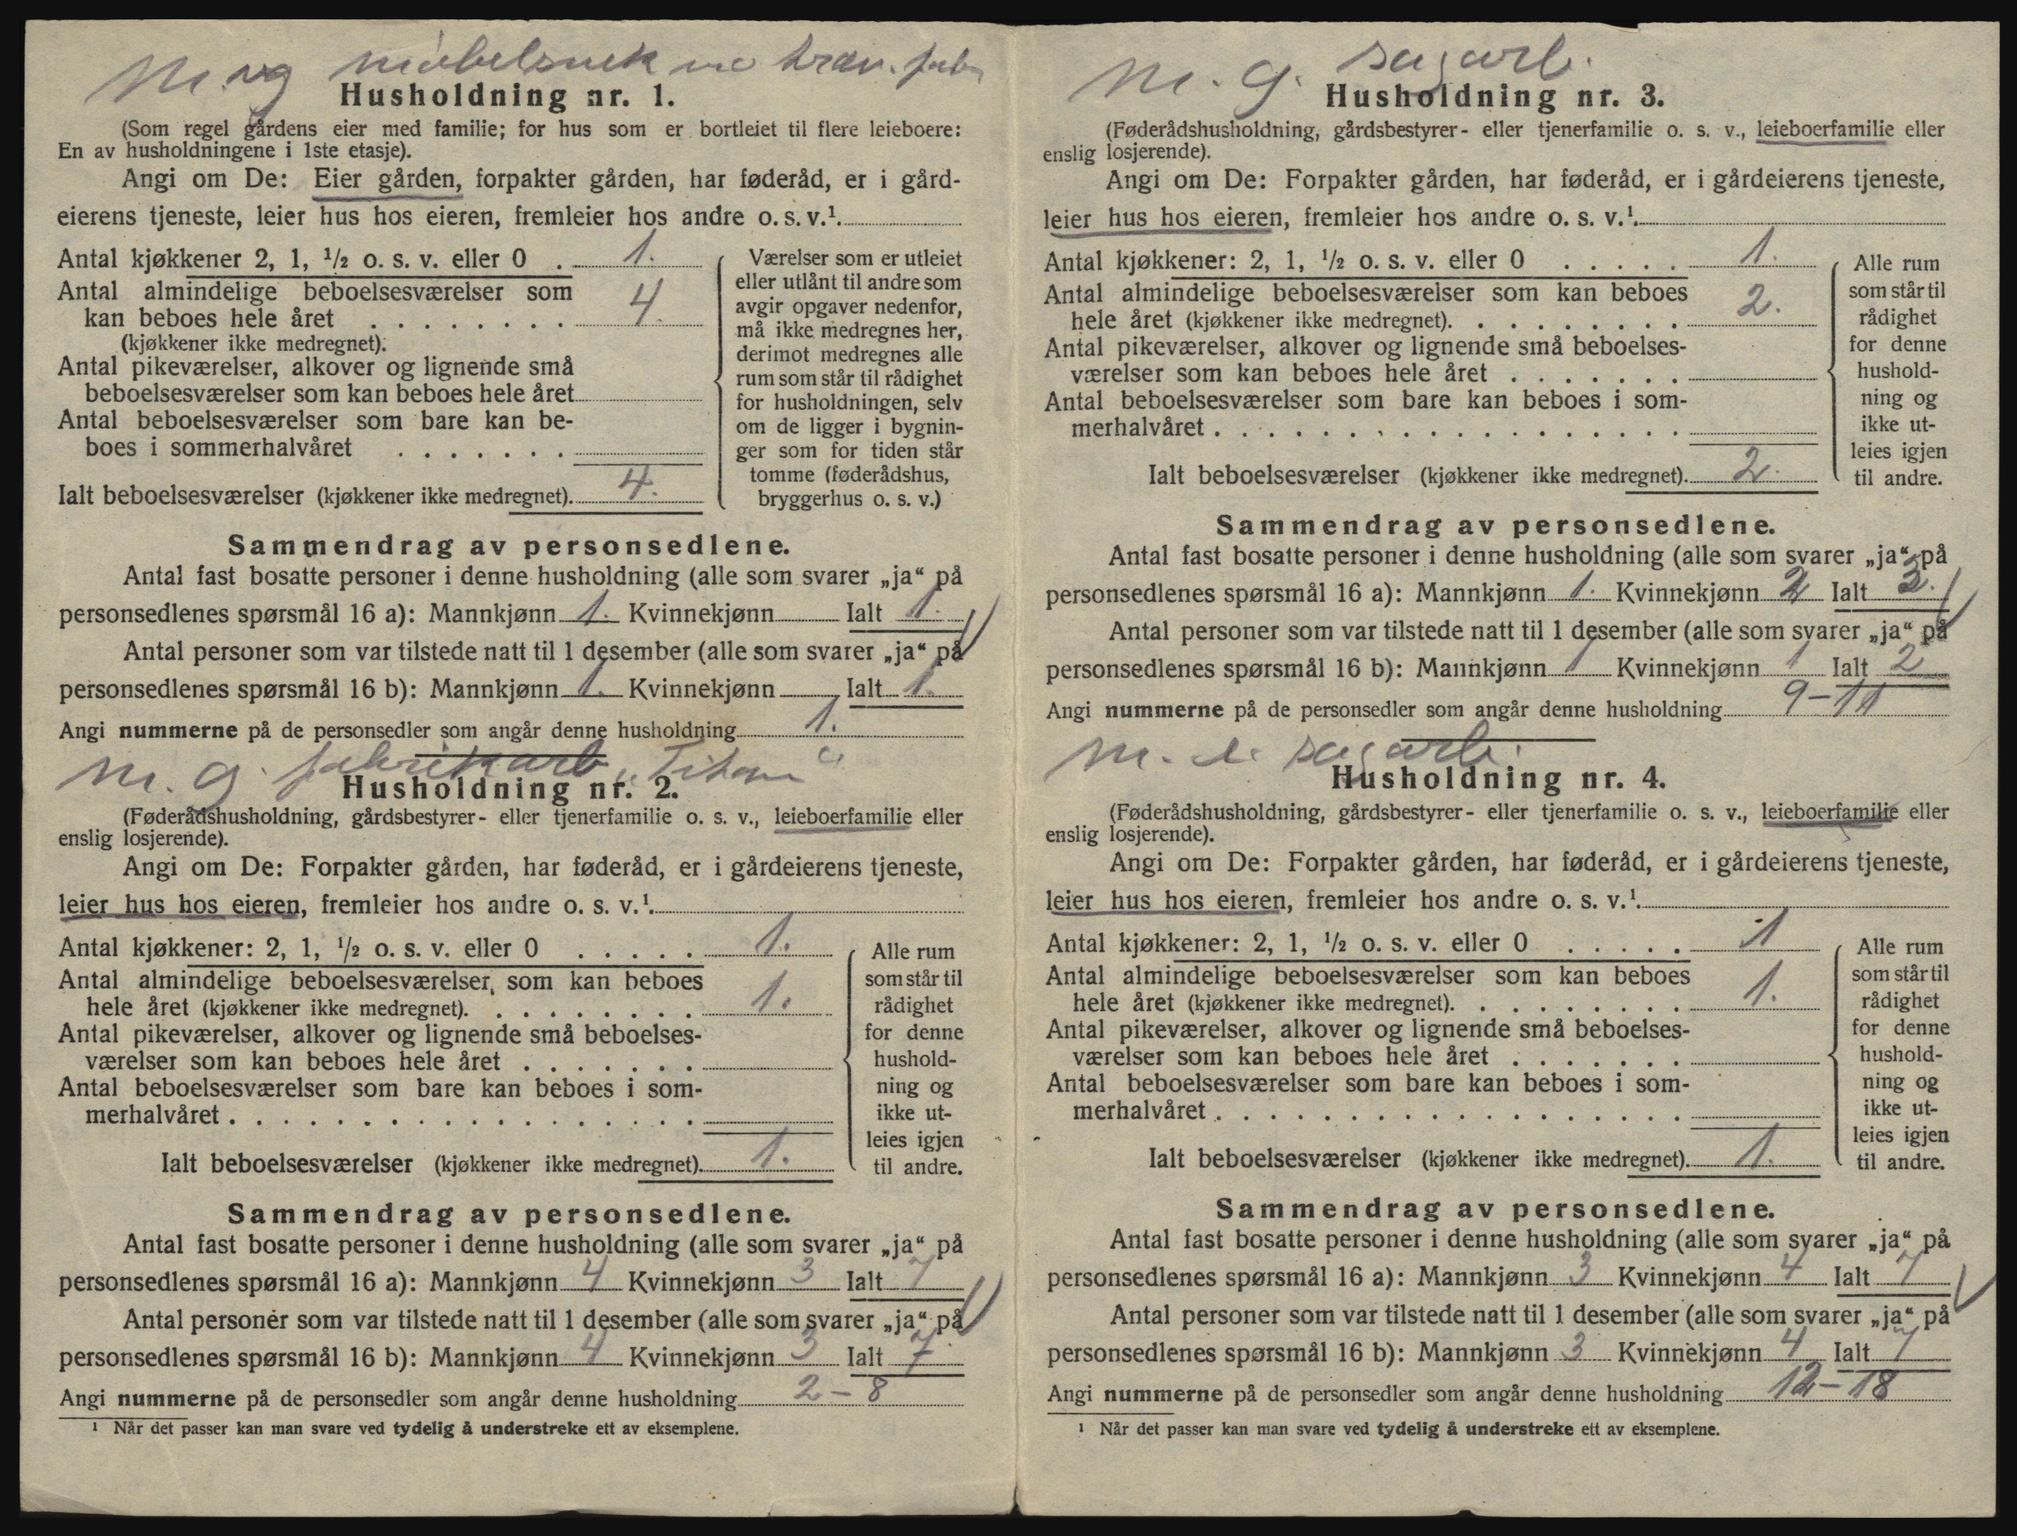 M. g møbelsnek
Husholdning nr. 1.
(Som regel gårdens eier med familie; for hus som er bortleiet til flere leieboere:
En av husholdningene i 1ste etasje).
Angi om De: Eier gården, forpakter gården, har føderåd, er i gård-
eierens tjeneste, leier hus hos eieren, fremleier hos andre o. s. v.¹.
Antal kjøkkener 2, 1, ½ o. s. v. eller 0 . 1.
Antal almindelige beboelsesværelser som
kan beboes hele året . . . . . . . . 4.
(kjøkkener ikke medregnet).
Antal pikeværelser, alkover og lignende små
beboelsesværelser som kan beboes hele året
Antal beboelsesværelser som bare kan be-
boes i sommerhalvåret . . . . . . .
Ialt beboelsesværelser (kjøkkener ikke medregnet). 4.
Værelser som er utleiet
eller utlånt til andre som
avgir opgaver nedenfor,
må ikke medregnes her,
derimot medregnes alle
rum som står til rådighet
for husholdningen, selv
om de ligger i bygnin-
ger som for tiden står
tomme (føderådshus,
bryggerhus o. s. v.)
Sammendrag av personsedlene.
Antal fast bosatte personer i denne husholdning (alle som svarer „ja“ på
personsedlenes spørsmål 16 a): Mannkjønn 1. Kvinnekjønn Ialt 1.
Antal personer som var tilstede natt til 1 desember (alle som svarer „ja“ på
personsedlenes spørsmål 16 b): Mannkjønn 1. Kvinnekjønn Ialt 1.
Angi nummerne på de personsedler som angår denne husholdning 1.
M. g. fabrikarb „Titan“
Husholdning nr. 2.
(Føderådshusholdning, gårdsbestyrer- eller tjenerfamilie o. s. v., leieboerfamilie eller
enslig losjerende).
Angi om De: Forpakter gården, har føderåd, er i gårdeierens tjeneste,
leier hus hos eieren, fremleier hos andre o. s. v.¹.
Antal kjøkkener: 2, 1, ½ o. s. v. eller 0 . . . . . 1.
Antal almindelige beboelsesværelser som kan beboes
hele året (kjøkkener ikke medregnet). . . . . . . . . 1.
Antal pikeværelser, alkover og lignende små beboelses-
værelser som kan beboes hele året . . . . . . .
Antal beboelsesværelser som bare kan beboes i som-
merhalvåret . . . . . . . . . . . . . . . . . .
Ialt beboelsesværelser (kjøkkener ikke medregnet). 1.
Alle rum
som står til
rådighet
for denne
hushold-
ning og
ikke ut-
leies igjen
til andre.
Sammendrag av personsedlene.
Antal fast bosatte personer i denne husholdning (alle som svarer „ja“ på
personsedlenes spørsmål 16 a): Mannkjønn 4 Kvinnekjønn 3 Ialt 7
Antal personer som var tilstede natt til 1 desember (alle som svarer „ja“ på
personsedlenes spørsmål 16 b): Mannkjønn 4 Kvinnekjønn 3 Ialt 7.
Angi nummerne på de personsedler som angår denne husholdning 2 – 8
¹ Når det passer kan man svare ved tydelig å understreke ett av eksemplene.
M. g. sagarb.
Husholdning nr. 3.
(Føderådshusholdning, gårdsbestyrer- eller tjenerfamilie o. s. v., leieboerfamilie eller
enslig losjerende).
Angi om De: Forpakter gården, har føderåd, er i gårdeierens tjeneste,
leier hus hos eieren, fremleier hos andre o. s. v.¹.
Antal kjøkkener: 2, 1, ½ o. s. v. eller 0 . . . . . 1.
Antal almindelige beboelsesværelser som kan beboes
hele året (kjøkkener ikke medregnet). . . . . . . . . 2.
Antal pikeværelser, alkover og lignende små beboelses-
værelser som kan beboes hele året . . . . . . .
Antal beboelsesværelser som bare kan beboes i som-
merhalvåret . . . . . . . . . . . . . . . . . .
Ialt beboelsesværelser (kjøkkener ikke medregnet). 2.
Alle rum
som står til
rådighet
for denne
hushold-
ning og
ikke ut-
leies igjen
til andre.
Sammendrag av personsedlene.
Antal fast bosatte personer i denne husholdning (alle som svarer „ja“ på
personsedlenes spørsmål 16 a): Mannkjønn 1. Kvinnekjønn 2 Ialt 3.
Antal personer som var tilstede natt til 1 desember (alle som svarer „ja“ på
personsedlenes spørsmål 16 b): Mannkjønn 1 Kvinnekjønn 1 Ialt 2
Angi nummerne på de personsedler som angår denne husholdning 9 – 11
M. sagarb.
Husholdning nr. 4.
(Føderådshusholdning, gårdsbestyrer- eller tjenerfamilie o. s. v., leieboerfamilie eller
enslig losjerende).
Angi om De: Forpakter gården, har føderåd, er i gårdeierens tjeneste,
leier hus hos eieren, fremleier hos andre o. s. v.¹.
Antal kjøkkener: 2, 1, ½ o. s. v. eller 0 . . . . . 1
Antal almindelige beboelsesværelser som kan beboes
hele året (kjøkkener ikke medregnet). . . . . . . . . 1.
Antal pikeværelser, alkover og lignende små beboelses-
værelser som kan beboes hele året . . . . . . .
Antal beboelsesværelser som bare kan beboes i som-
merhalvåret . . . . . . . . . . . . . . . . . .
Ialt beboelsesværelser (kjøkkener ikke medregnet). 1.
Alle rum
som står til
rådighet
for denne
hushold-
ning og
ikke ut-
leies igjen
til andre.
Sammendrag av personsedlene.
Antal fast bosatte personer i denne husholdning (alle som svarer „ja“ på
personsedlenes spørsmål 16 a): Mannkjønn 3 Kvinnekjønn 4 Ialt 7
Antal personer som var tilstede natt til 1 desember (alle som svarer „ja“ på
personsedlenes spørsmål 16 b): Mannkjønn 3 Kvinnekjønn 4 Ialt 7
Angi nummerne på de personsedler som angår denne husholdning 12 – 18
¹ Når det passer kan man svare ved tydelig å understreke ett av eksemplene.